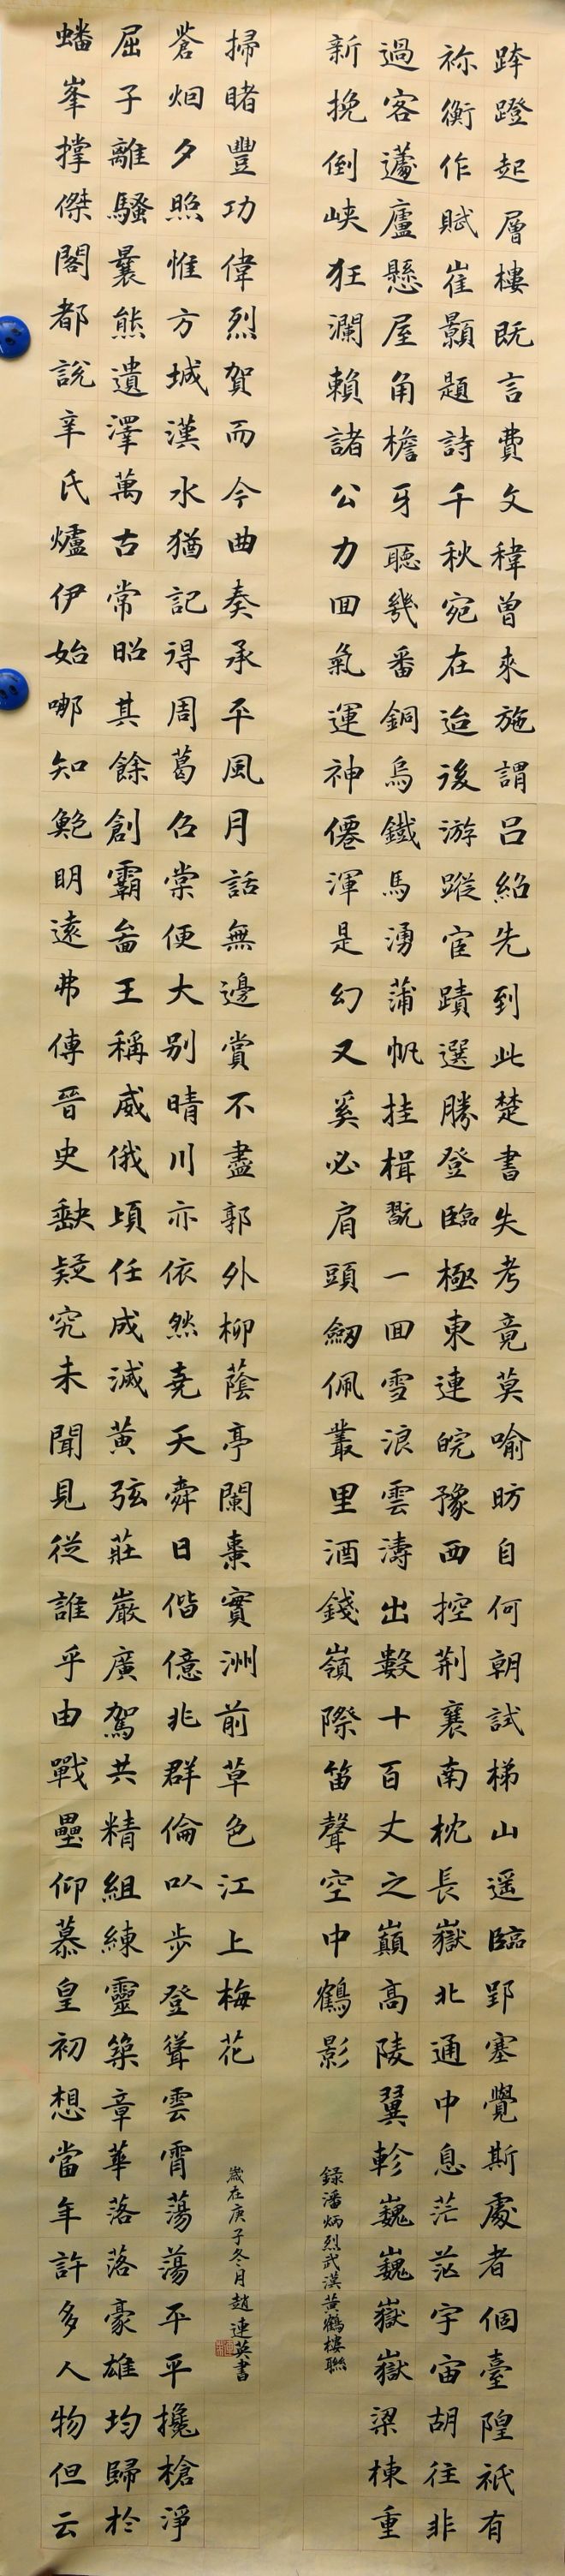 跨蹬起層樓既言費文禕曾來施謂呂紹先到此楚書失考竟莫喻昉自何朝試梯山遥臨郢塞覺斯處者個臺隍祇有
祢衡作賦崔顥題詩千秋宛在迨後游蹤宦蹟選勝登臨極東連皖豫西控荆襄南枕長嶽北通中息茫茫宇宙胡往非
過客蘧廬懸屋角檐牙聽幾番銅烏鐵馬湧蒲帆挂楫翫一回雪浪雲濤出數十百丈之巔高陵翼軫巍巍嶽嶽梁棟重
新挽倒峡狂瀾賴諸公力回氣運神僊渾是幻又奚必肩頭劒佩叢里酒錢嶺際笛聲空中鶴影
録潘炳烈武漢黄鶴樓聯
蟠峯撑傑閣都說辛氏爐伊始哪知鮑明遠弗傳晉史缺疑究未聞見從誰乎由戰壘仰慕皇初想當年許多人物但云
屈子離騷曩熊遺澤萬古常昭其餘創霸啚王稱威俄頃任成滅黄弦莊嚴廣駕共精組練靈築章華落落豪雄均歸於
蒼烟夕照惟方城漢水猶記得周葛召棠便大别晴川亦依然堯天舜日偕億兆群倫以步登聳雲霄蕩蕩平平攙槍淨
掃睹豐功偉烈賀而今曲奏承平風月話無邊賞不盡郭外柳蔭亭闌棗實洲前草色江上梅花
歲在庚子冬月趙連英書